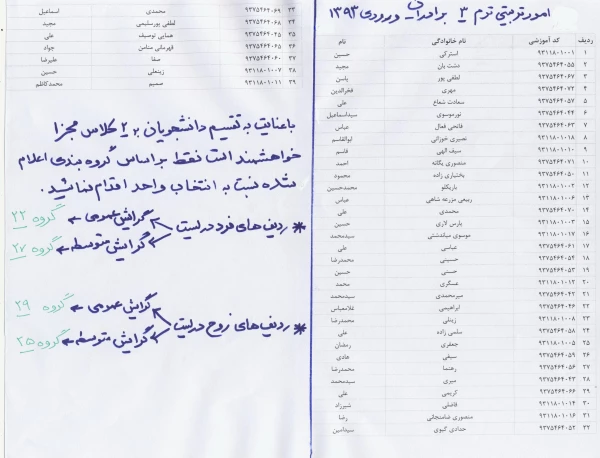 امور تربیتی ترم ۳ برادران ورودی ۱۳۹۳
ردیف کد آموزشی نام خانوادگی نام
۱ ۹۳۱۱۸۰۱۰۰۱ استرکی حسین
۲ ۹۳۷۵۴۶۴۰۵۵ دشت بان مجید
۳ ۹۳۷۵۴۶۴۰۶۷ لطفی پور یاسن
۴ ۹۳۷۵۴۶۴۰۷۲ مهری فخرالدین
۵ ۹۳۷۵۴۶۴۰۵۷ سعادت شعاع علی
۶ ۹۳۷۵۴۶۴۰۴۴ نورموسوی سیداسماعیل
۷ ۹۳۷۵۴۶۴۰۶۳ فاتحی فعال عباس
۸ ۹۳۱۱۸۰۱۰۱۸ نصیری خوزانی ابوالقاسم
۹ ۹۳۱۱۸۰۱۰۱۰ سیف الهی قاسم
۱۰ ۹۳۷۵۴۶۴۰۷۱ منصوری یگانه احمد
۱۱ ۹۳۷۵۴۶۴۰۵۰ بختیاری زاده محمود
۱۲ ۹۳۱۱۸۰۱۰۰۲ باریکلو محمدحسین
۱۳ ۹۳۱۱۸۰۱۰۰۶ ربیعی مزرعه شاهی عباس
۱۴ ۹۳۷۵۴۶۴۰۷۰ محمدی علی
۱۵ ۹۳۱۱۸۰۱۰۰۳ پارس لاری حسین
۱۶ ۹۳۱۱۸۰۱۰۱۷ موسوی میاندشتی سیدمحمد
۱۷ ۹۳۷۵۴۶۴۰۶۱ عباسی علی
۱۸ ۹۳۷۵۴۶۴۰۵۴ حسینی محمدرضا
۱۹ ۹۳۷۵۴۶۴۰۵۳ حسنی حسین
۲۰ ۹۳۱۱۸۰۱۰۱۲ عسگری محمد
۲۱ ۹۳۷۵۴۶۴۰۴۲ میرمحمدی سیدمحمد
۲۲ ۹۳۷۵۴۶۴۰۴۶ ابراهیمی غلامعباس
۲۳ ۹۳۱۱۸۰۱۰۰۸ زینلی محمدرضا
۲۴ ۹۳۷۵۴۶۴۰۵۸ سلمی زاده علی
۲۵ ۹۳۱۱۸۰۱۰۰۵ جعفری رمضان
۲۶ ۹۳۷۵۴۶۴۰۵۹ سیفی هادی
۲۷ ۹۳۷۵۴۶۴۰۵۶ رهنما محمدرضا
۲۸ ۹۳۷۵۴۶۴۰۴۳ میری سیدمحمد
۲۹ ۹۳۷۵۴۶۴۰۶۶ کریمی علی
۳۰ ۹۳۱۱۸۰۱۰۱۴ فاضلی شیرزاد
۳۱ ۹۳۱۱۸۰۱۰۱۶ منصوری ضامنجانی رضا
۳۲ ۹۳۷۵۴۶۴۰۵۲ حدادی گیوی سیدامین
۳۳ ۹۳۷۵۴۶۴۰۶۹ محمدی اسماعیل
۳۴ ۹۳۷۵۴۶۴۰۶۸ لطفی پورسلیمی مجید
۳۵ ۹۳۷۵۴۶۴۰۴۵ همایی توصیف علی
۳۶ ۹۳۷۵۴۶۴۰۶۵ قهرمانی منامن جواد
۳۷ ۹۳۷۵۴۶۴۰۶۰ صفا علیرضا
۳۸ ۹۳۱۱۸۰۱۰۰۷ زینعلی حسین
۳۹ ۹۳۱۱۸۰۱۰۱۱ صمیم محمدکاظم
باعنایت به تقسیم دانشجویان به ۲ کلاس مجزا
خواهشمند است فقط بر اساس گروه بندی اعلام
شده نسبت به انتخاب واحد اقدام نمائید.
* ردیف های فرد در لیست گرایش عمومی گروه ۲۲
گرایش متوسطه گروه ۲۷
* ردیف های زوج در لیست گرایش عمومی گروه ۲۹
گرایش متوسطه گروه ۲۵